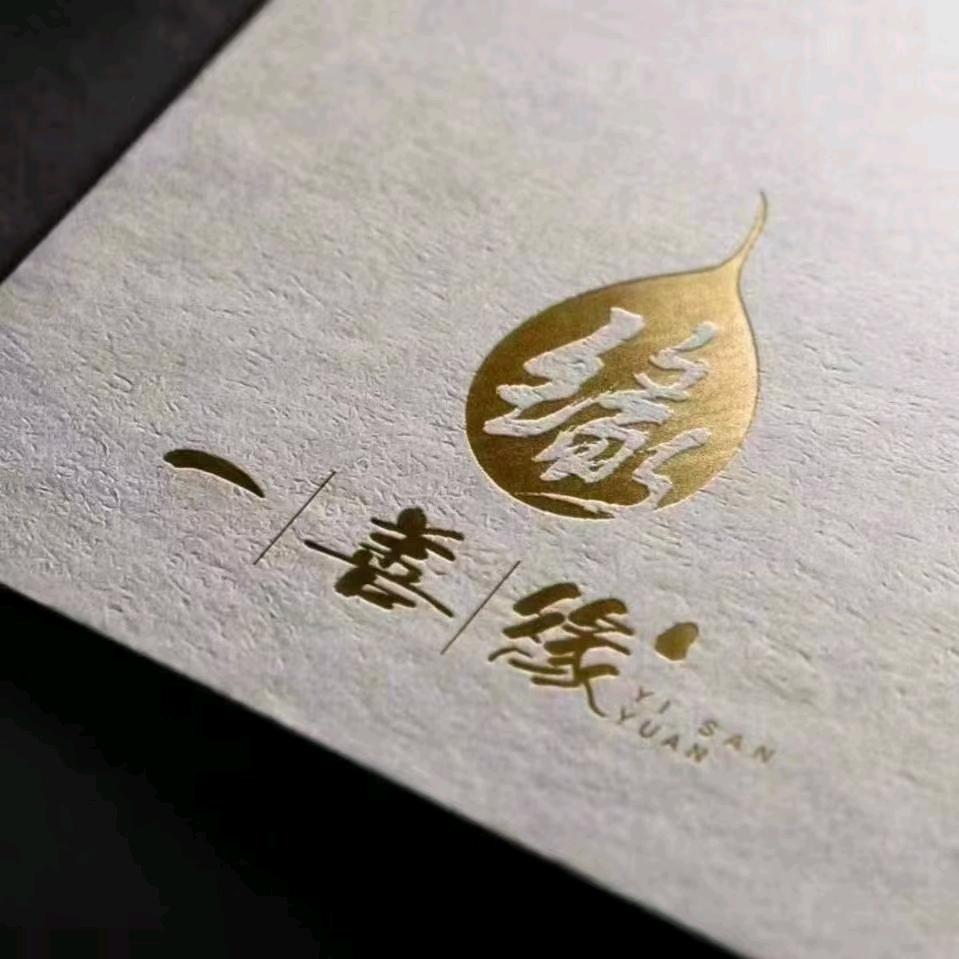 一善缘
YI SAN
YUAN